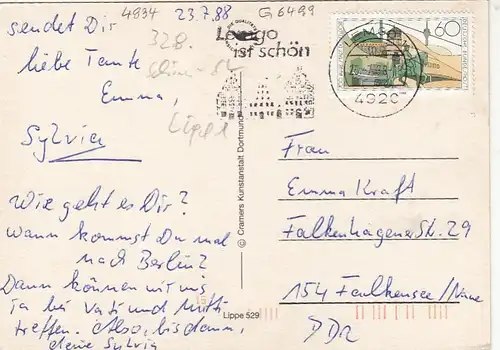 4934 23.7.88 G 6499
sendet Dir
liebe Tante
Emma,
Sylvia
328
Lippe
Wie geht es Dir?
Wann kommst Du mal
nach Berlin?
Dann können wir uns
ja bei Vati und Mutti
treffen. Also, bis dann,
deine Sylvia
© Cramers Kunstanstalt Dortmund
Lippe 529
Lemgo
ist schön
4920
60
DEUTSCHE BUNDESPOST
Frau
Emma Kraft
Falkenhagener Str. 29
154 Falkensee/
DDR